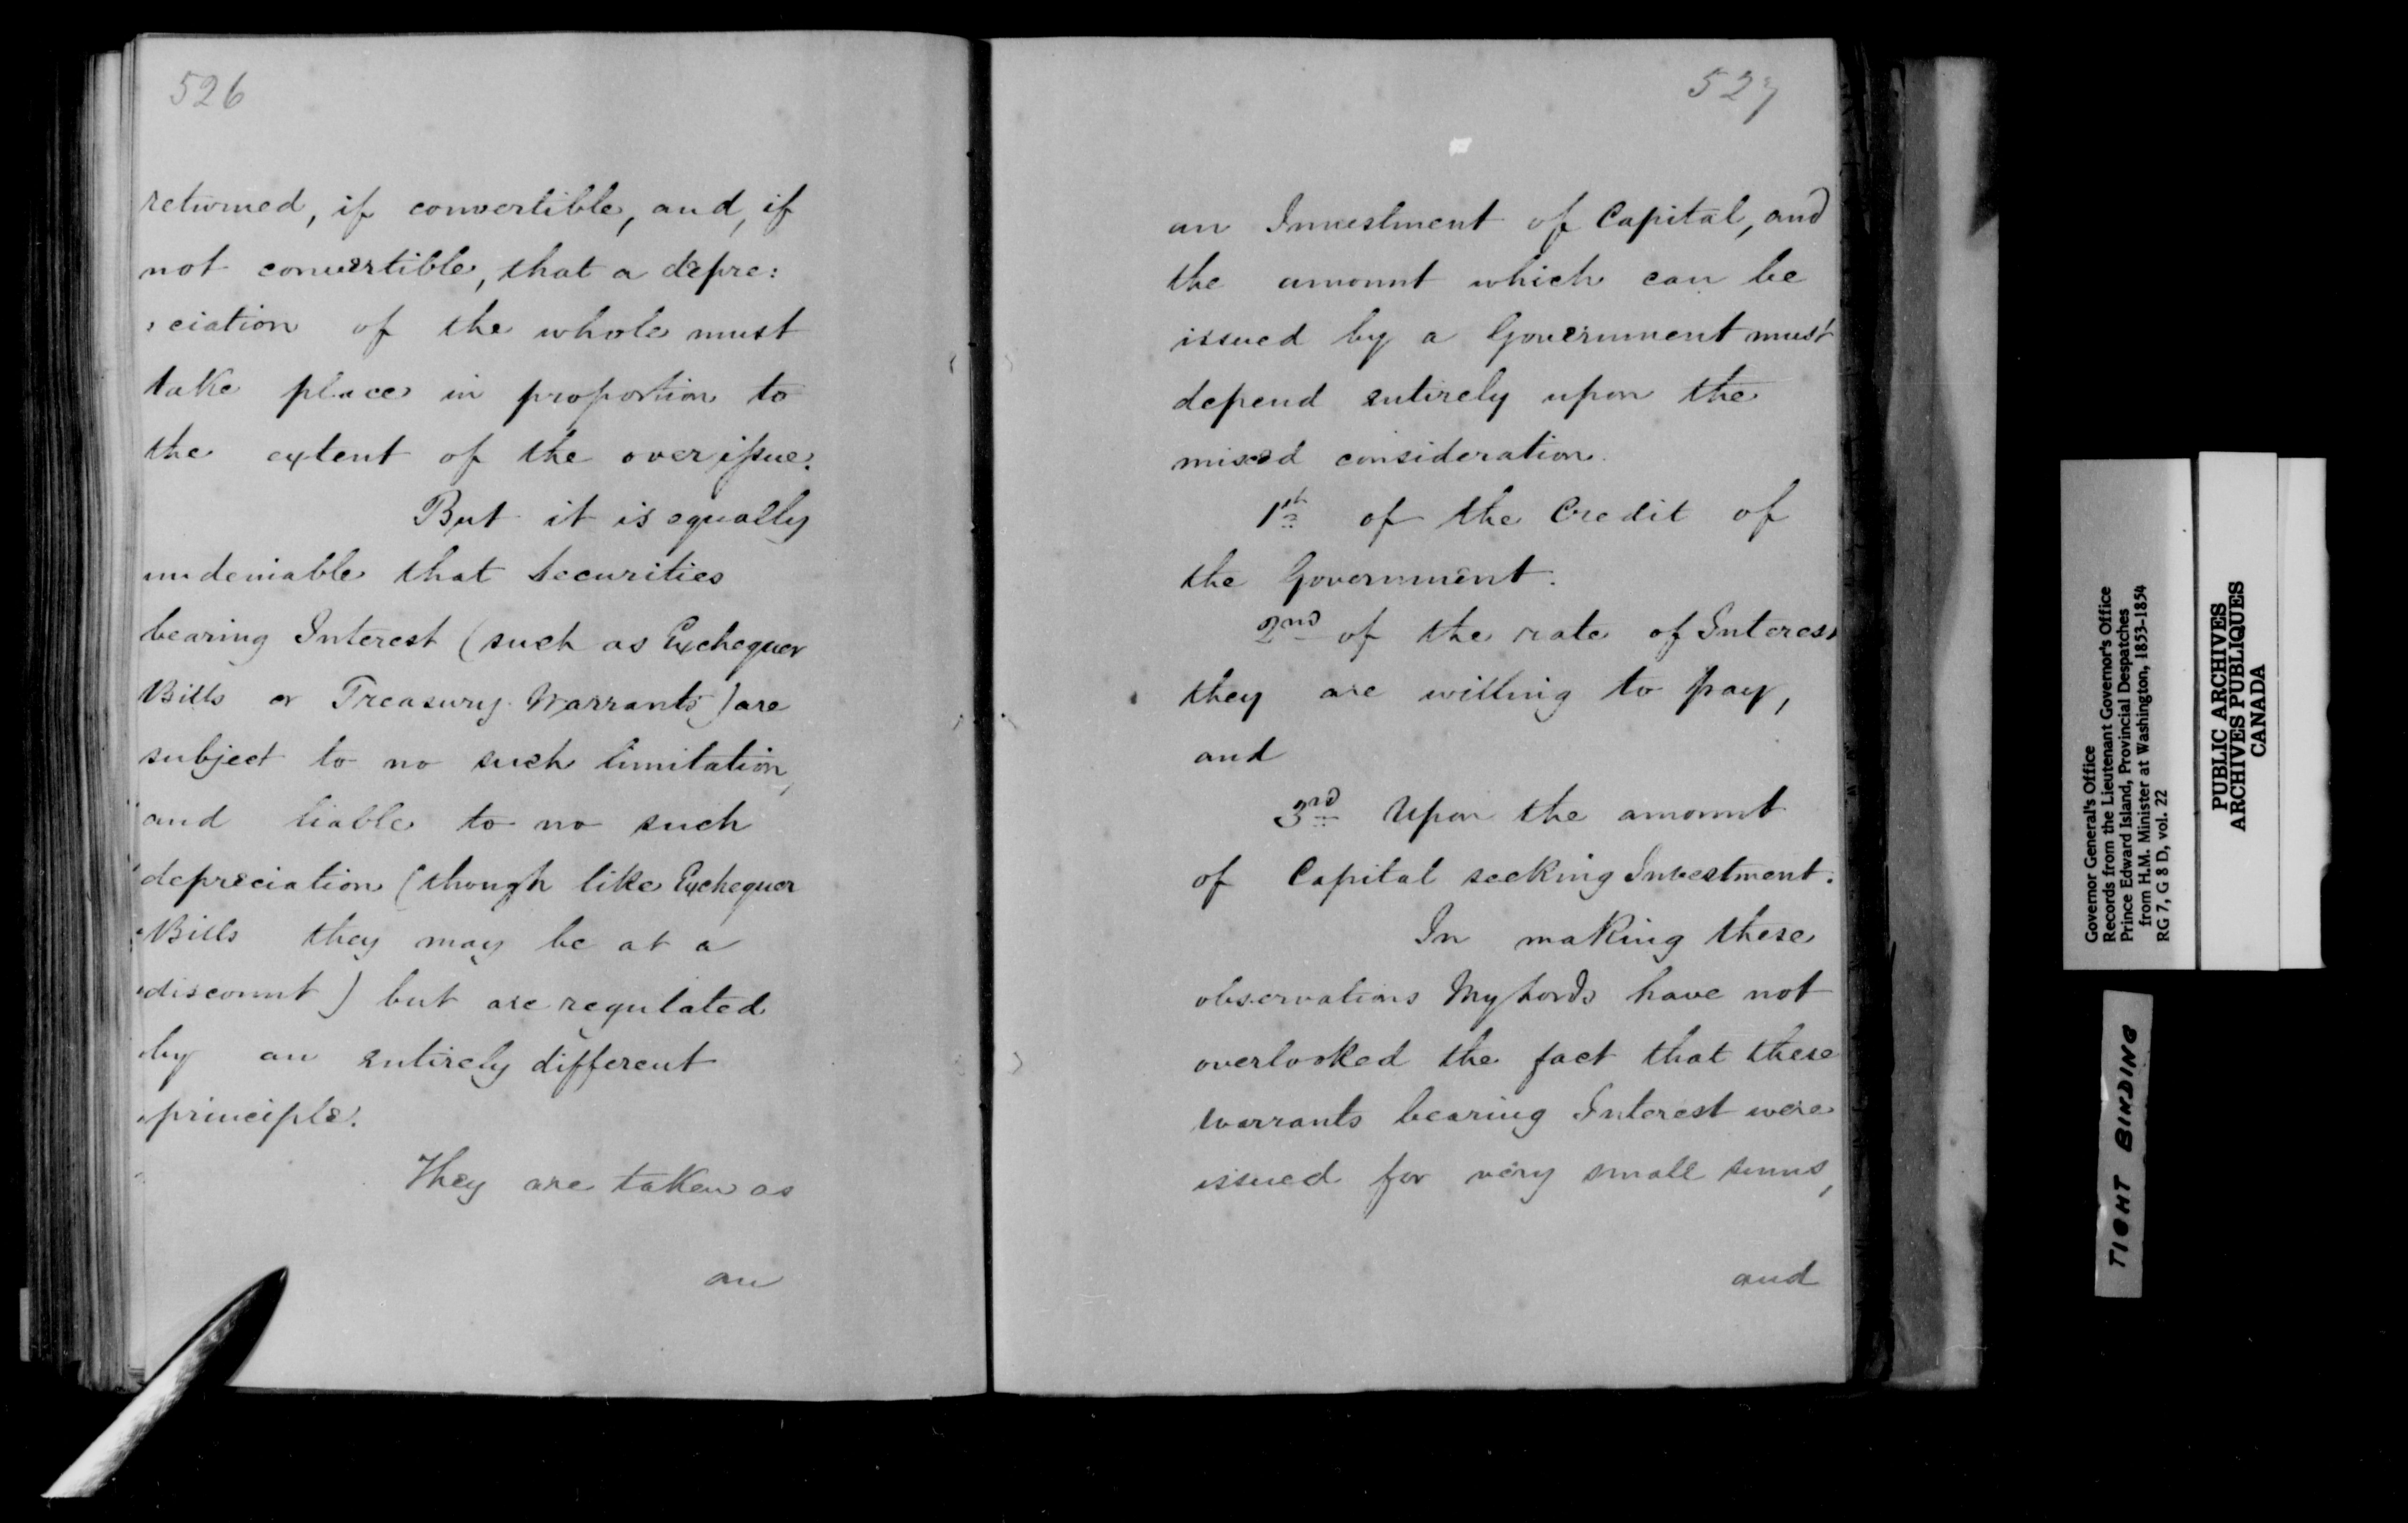 526
returned, if convertible, and, if
not convertible, that a depre:
:ciation of the whole must
take place in proportion to
the extent of the over issue.
But it is equally
undeniable that Securities
bearing Interest (such as Exchequer
Bills or Treasury Warrants) are
subject to no such limitation,
and liable to no such
depreciation (though like Exchequer
Bills they may be at a
discount) but are regulated
by an entirely different
principle.
They are taken as
an
527
an Investment of Capital, and
the amount which can be
issued by a Government must
depend entirely upon the
mixed consideration.
1st of the Credit of
the Government.
2nd of the rate of Interest
they are willing to pay,
and
3rd Upon the amount
of Capital seeking Investment.
In making these
observations My Lords have not
overlooked the fact that these
Warrants bearing Interest were
issued for very small sums,
and
Governor General's Office
Records from the Lieutenant Governor's Office
Prince Edward Island, Provincial Despatches
from H.M. Minister at Washington, 1853-1854
RG 7, G 8 D, vol. 22
PUBLIC ARCHIVES
ARCHIVES PUBLIQUES
CANADA
TIGHT BINDING